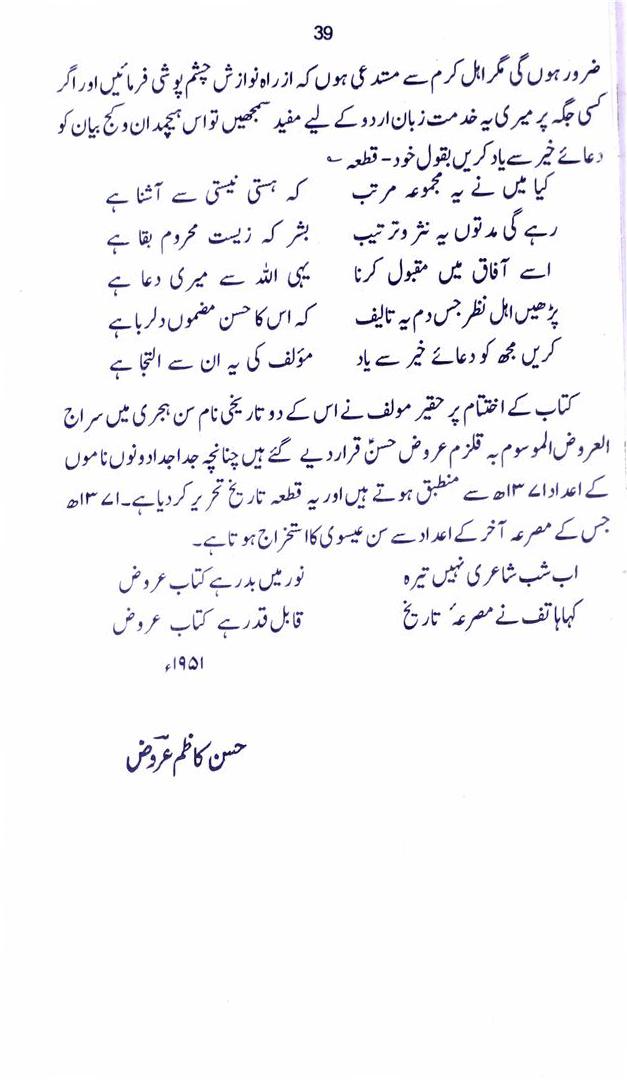 39
ضرور ہوں گی مگر اہل کرم سے مستدعی ہوں کہ از راہ نوازش چشم پوشی فرمائیں اور اگر
کسی جگہ پر میری یہ خدمت زبان اردو کے لیے مفید سمجھیں تو اس ہیچمدان و کج بیان کو
دعائے خیر سے یاد کریں بقول خود - قطعہ ؎
کیا میں نے یہ مجموعہ مرتب کہ ہستی نیستی سے آشنا ہے
رہے گی مدتوں یہ نثر و ترتیب بشر کہ زیست محروم بقا ہے
اسے آفاق میں مقبول کرنا یہی اللہ سے میری دعا ہے
پڑھیں اہل نظر جس دم یہ تالیف کہ اس کا حسن مضموں دلربا ہے
کریں مجھ کو دعائے خیر سے یاد مؤلف کی یہ ان سے التجا ہے
کتاب کے اختتام پر حقیر مولف نے اس کے دو تاریخی نام سن ہجری میں سراج
العروض الموسوم بہ قلزم عروض حسنؔ قرار دیے گئے ہیں چنانچہ جدا جدا دونوں ناموں
کے اعداد ۱۳۷۱ھ سے منطبق ہوتے ہیں اور یہ قطعہ تاریخ تحریر کر دیا ہے۔ ۱۳۷۱ھ
جس کے مصرعہ آخر کے اعداد سے سن عیسوی کا استخراج ہوتا ہے۔
اب شب شاعری نہیں تیرہ نور میں بدر ہے کتاب عروض
کہا ہاتف نے مصرعۂ تاریخ قابل قدر ہے کتاب عروض
۱۹۵۱ء
حسن کاظم عروضؔ